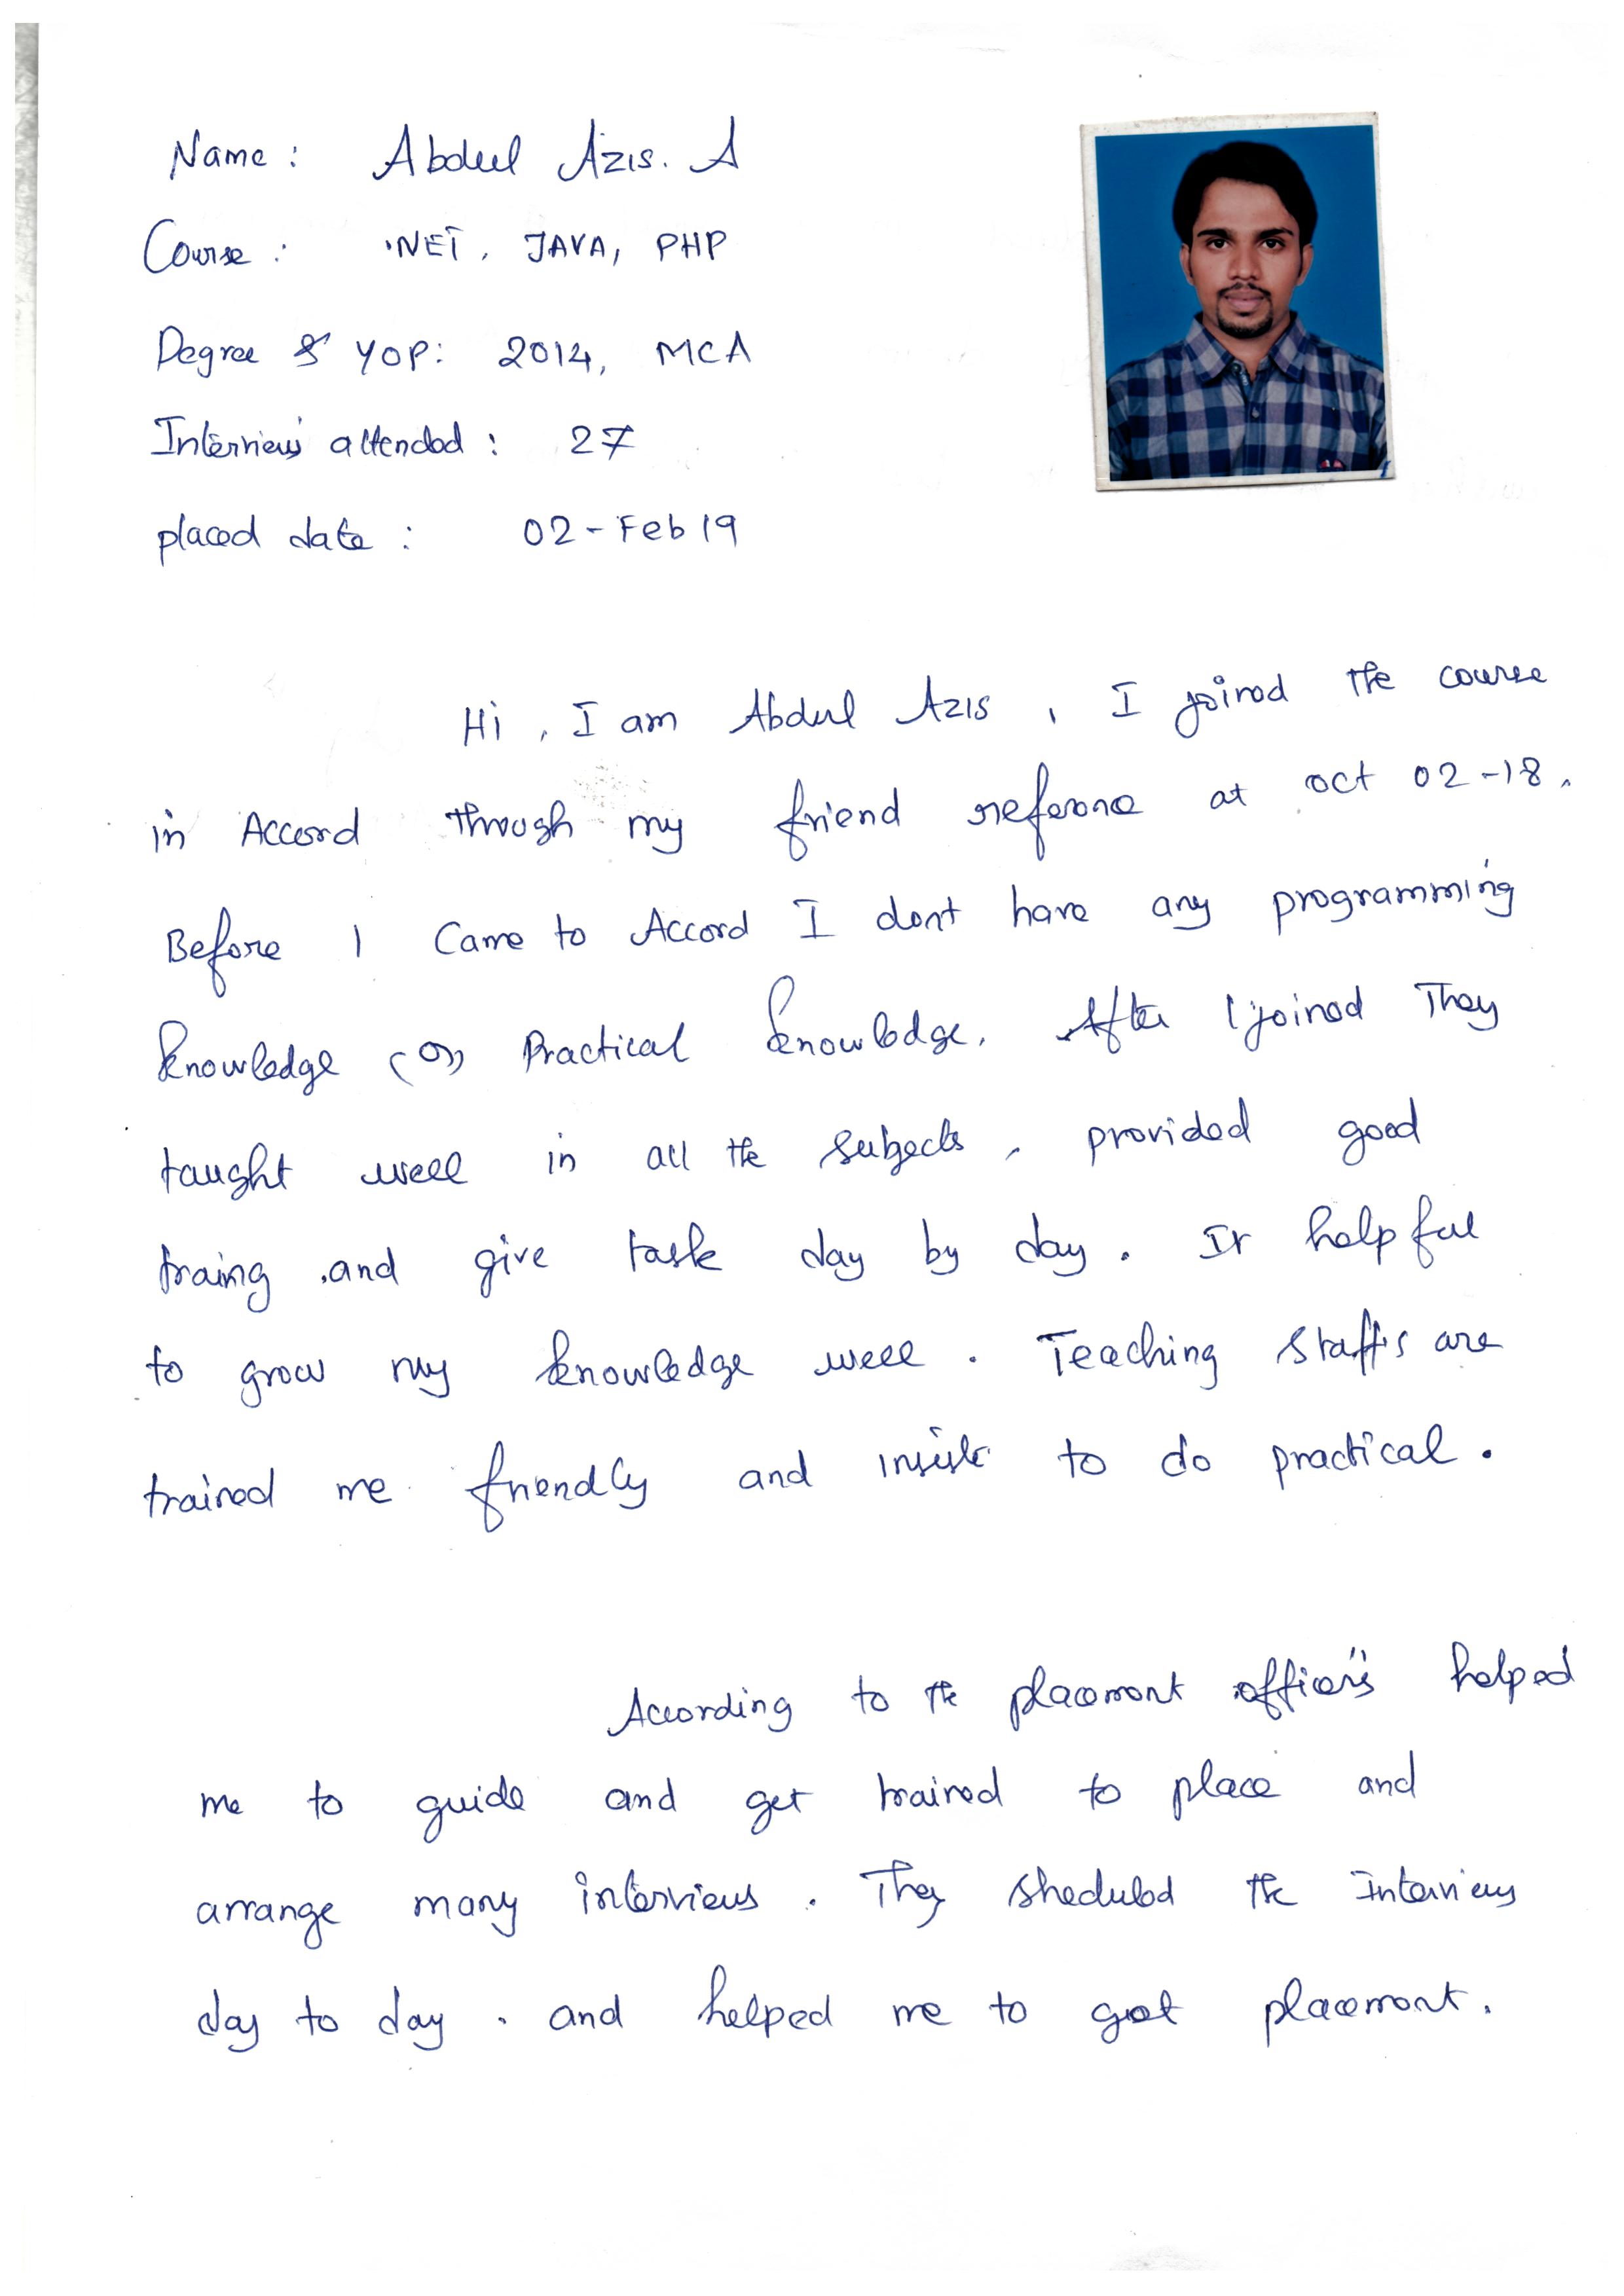 Name : Abdul Azis. A
Course : .NET, JAVA, PHP
Degree & YOP: 2014, MCA
Interview attended : 27
placed date : 02 - Feb 19
Hi, I am Abdul Azis, I joined the course
in Accord through my friend reference at oct 02 -18.
Before I Came to Accord I dont have any programming
knowledge (or) Practical knowledge. After I joined They
taught well in all the subjects, provided good
traing and give task day by day. It helpful
to grow my knowledge well. Teaching staffs are
trained me friendly and insist to do practical.
According to the placement officer's helped
me to guide and get trained to place and
arrange many interviews. They sheduled the Interviews
day to day. and helped me to get placement.